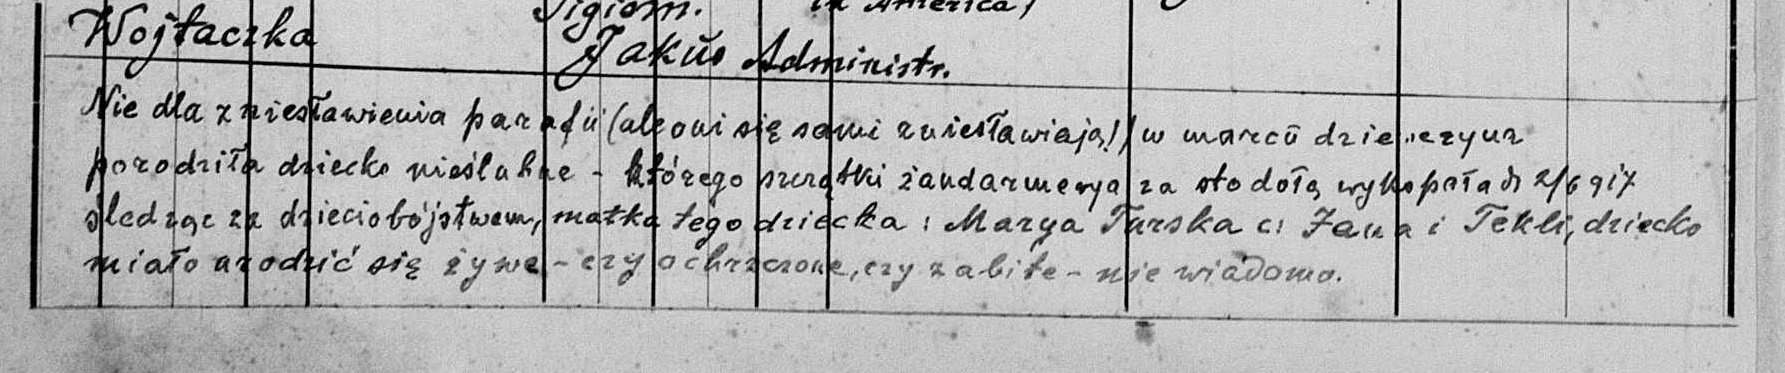 in America)
Wojtaczka
Jakus Administr.
Nie dla zniesławienia parafii (ale oni się sami zniesławiają!) w marcu dziewczyna
porodziła dziecko nieślubne - którego szczątki żandarmerya za stodołą wykopała d 2/6 917
śledząc za dzieciobójstwem, matka tego dziecka : Marya Turska c: Jana i Tekli, dziecko
miało urodzić się żywe - czy ochrzczone, czy zabite - nie wiadomo.